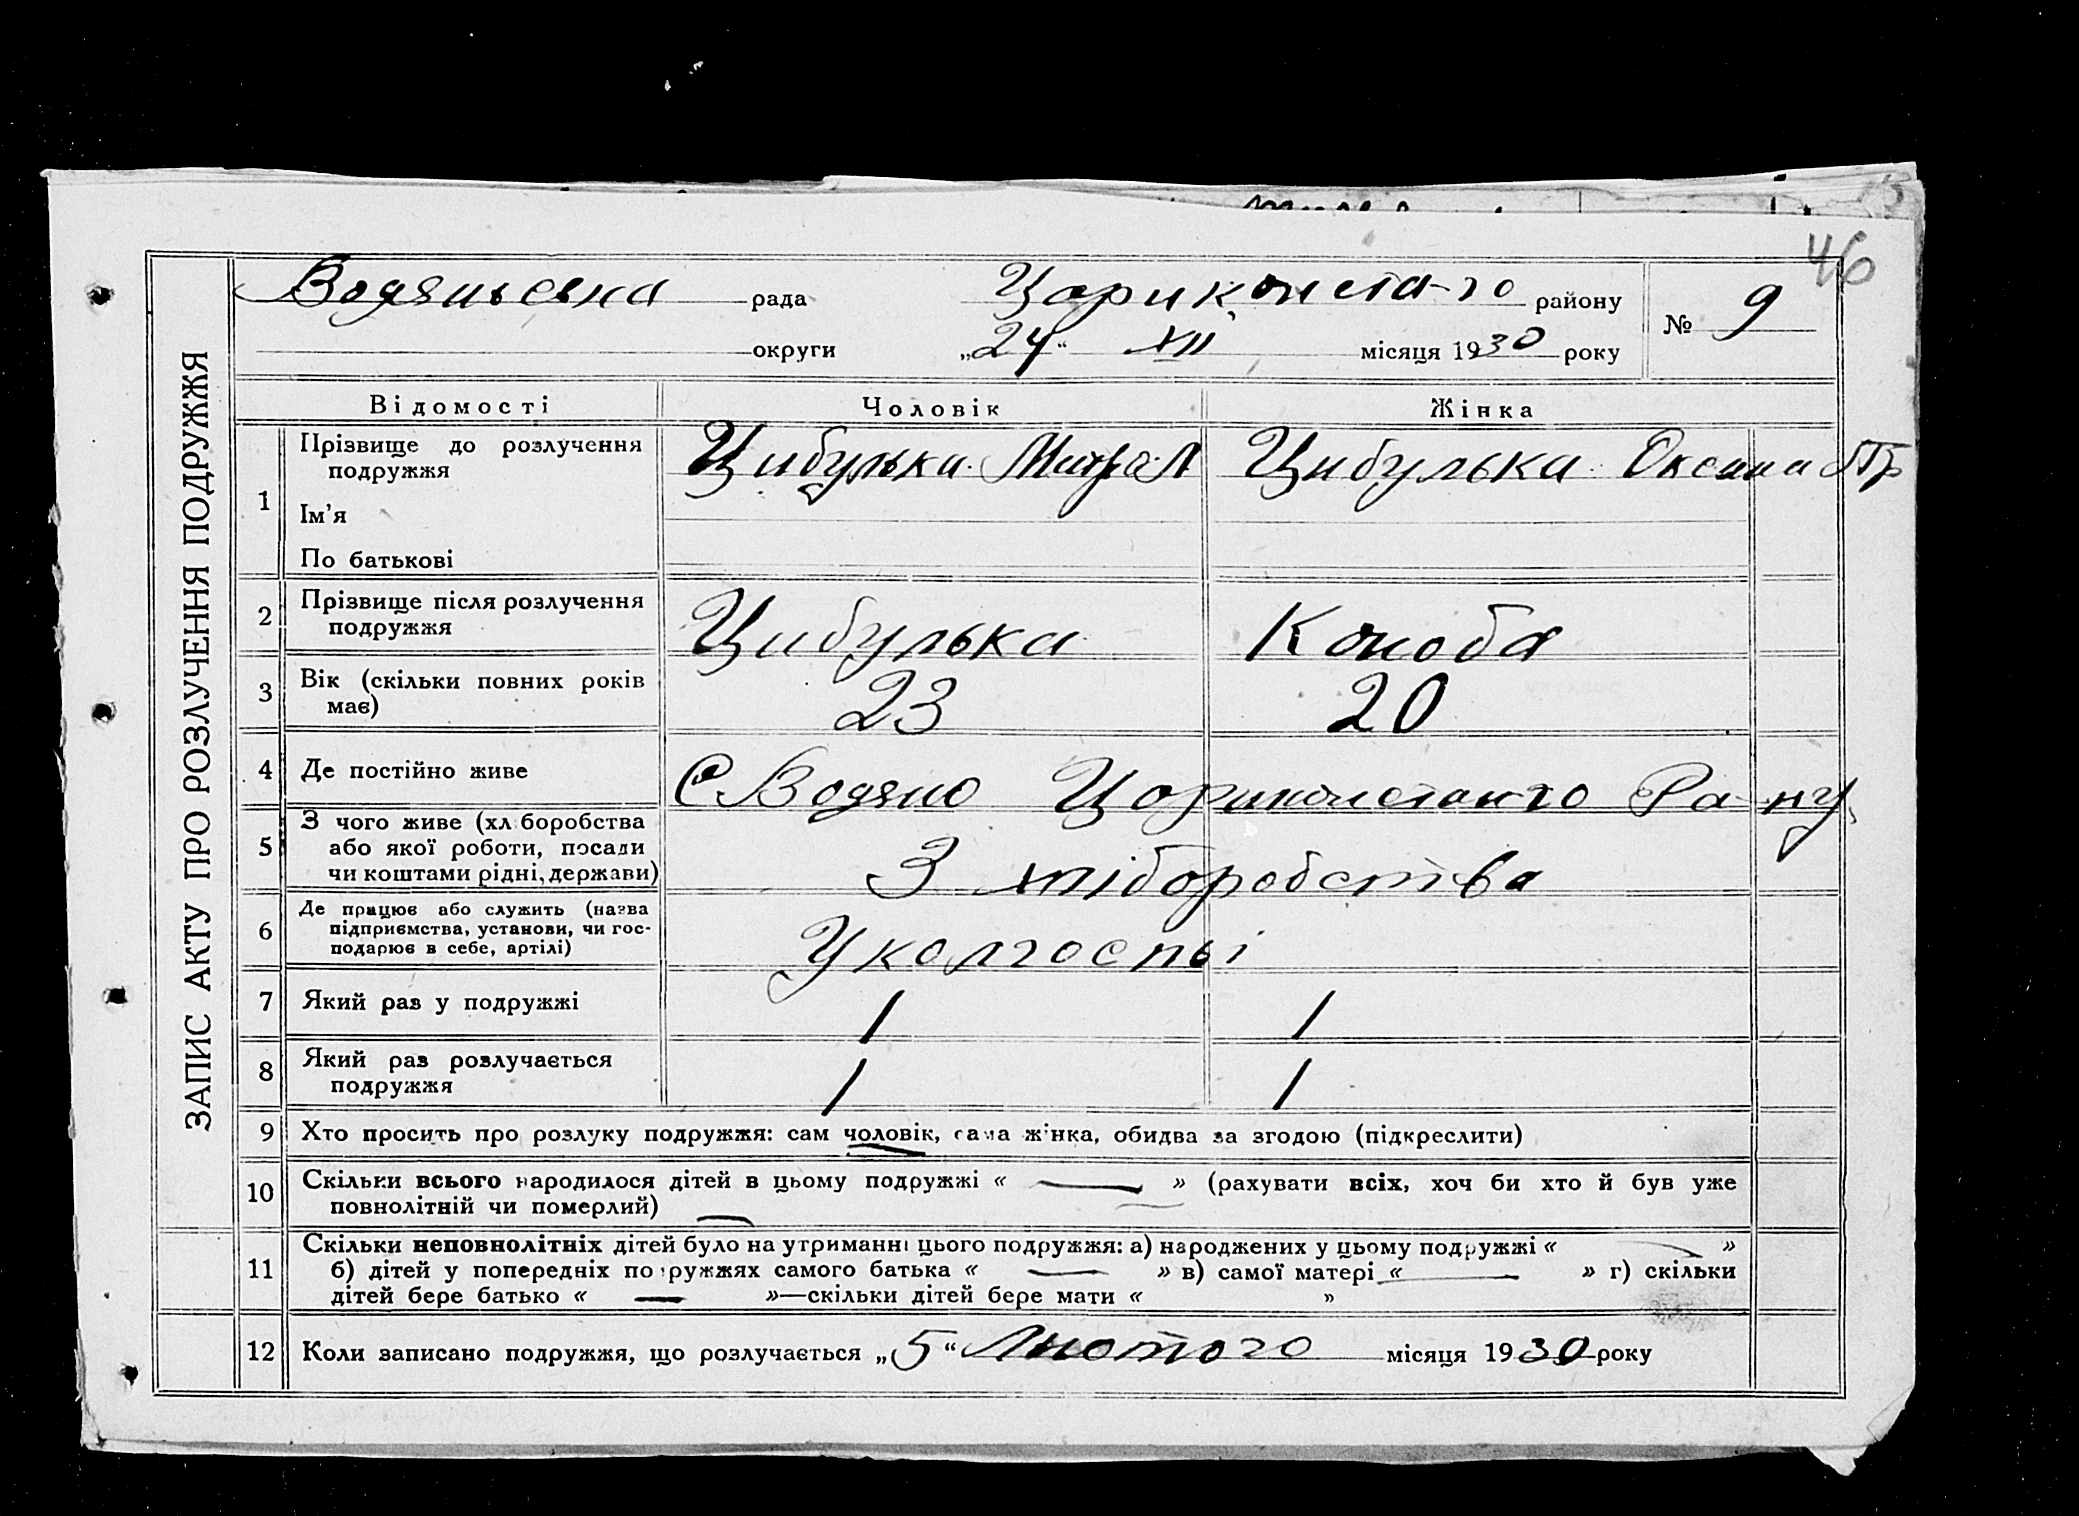 46
ЗАПИС АКТУ ПРО РОЗЛУЧЕННЯ ПОДРУЖЖЯ
Водяньська рада Цариконста-го району № 9
округи „24“ XII місяця 1930 року
Відомості Чоловік Жінка
1 Прізвище до розлучення подружжя Цибулька Цибулька Оксана Пр
Ім'я
По батькові
2 Прізвище після розлучення подружжя Цибулька Коноба
3 Вік (скільки повних років має) 23 20
4 Де постійно живе С Водяно Цариконстан-го Ра-ну
5 З чого живе (хліборобства або якої роботи, посади чи коштами рідні, держави) З хліборобства
6 Де працює або служить (назва підприємства, установи, чи господарює в себе, артілі) У колгоспі
7 Який раз у подружжі 1 1
8 Який раз розлучається подружжя 1 1
9 Хто просить про розлуку подружжя: сам чоловік, сама жінка, обидва за згодою (підкреслити)
10 Скільки всього народилося дітей в цьому подружжі « — » (рахувати всіх, хоч би хто й був уже
повнолітній чи померлий) —
11 Скільки неповнолітніх дітей було на утриманні цього подружжя: а) народжених у цьому подружжі « — »
б) дітей у попередніх подружжях самого батька « — » в) самої матері « — » г) скільки
дітей бере батько « — »—скільки дітей бере мати « »
12 Коли записано подружжя, що розлучається „5“ Лютого місяця 1930 року